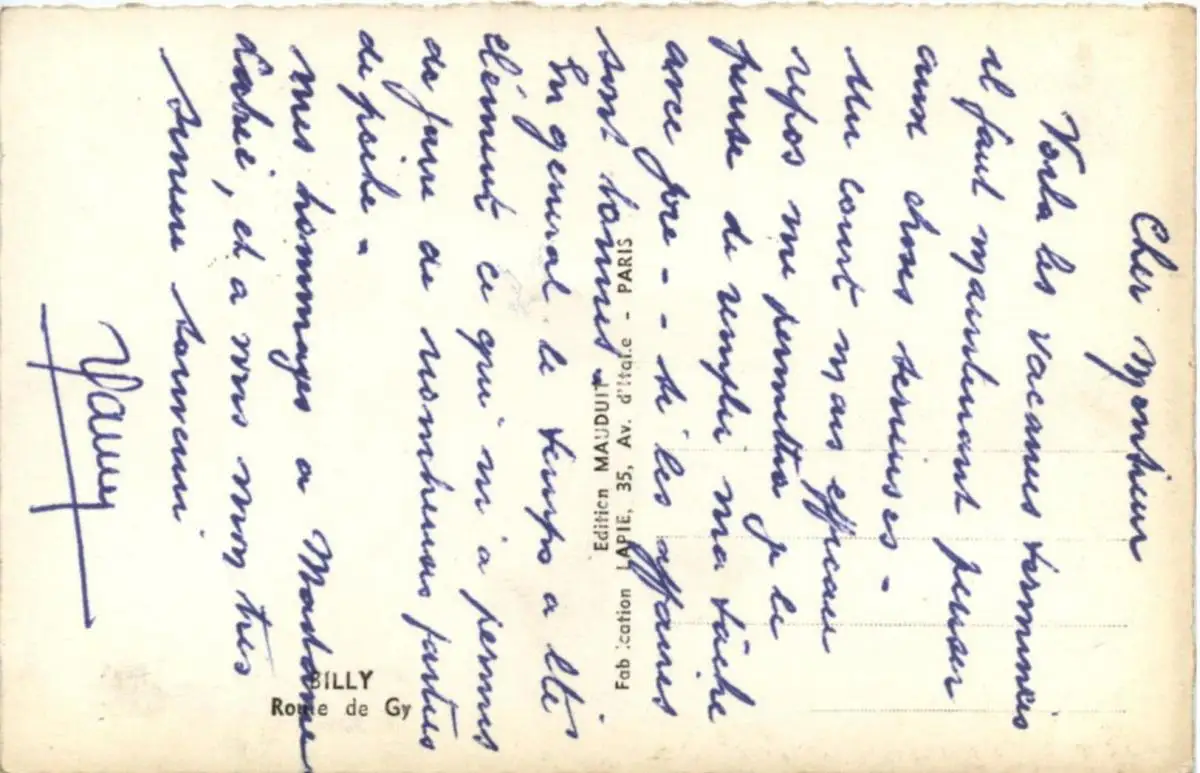 Cher Monsieur
Voila les vacances terminées
il faut maintenant penser
aux choses serieuses -
Un court mais efficace
repos me permettra je le
pense de remplir ma tâche
avec joie - - si les affaires
sont bonnes -
En general le temps a été
clément ce qui m'a permis
de faire de nombreuses parties
de pêche -
Mes hommages a Madame
et a vous mon tres
sincere souvenir
Edition MAUDUIT
Fabrication LAPIE, 35, Av. d'Italie - PARIS
BILLY
Route de Gy